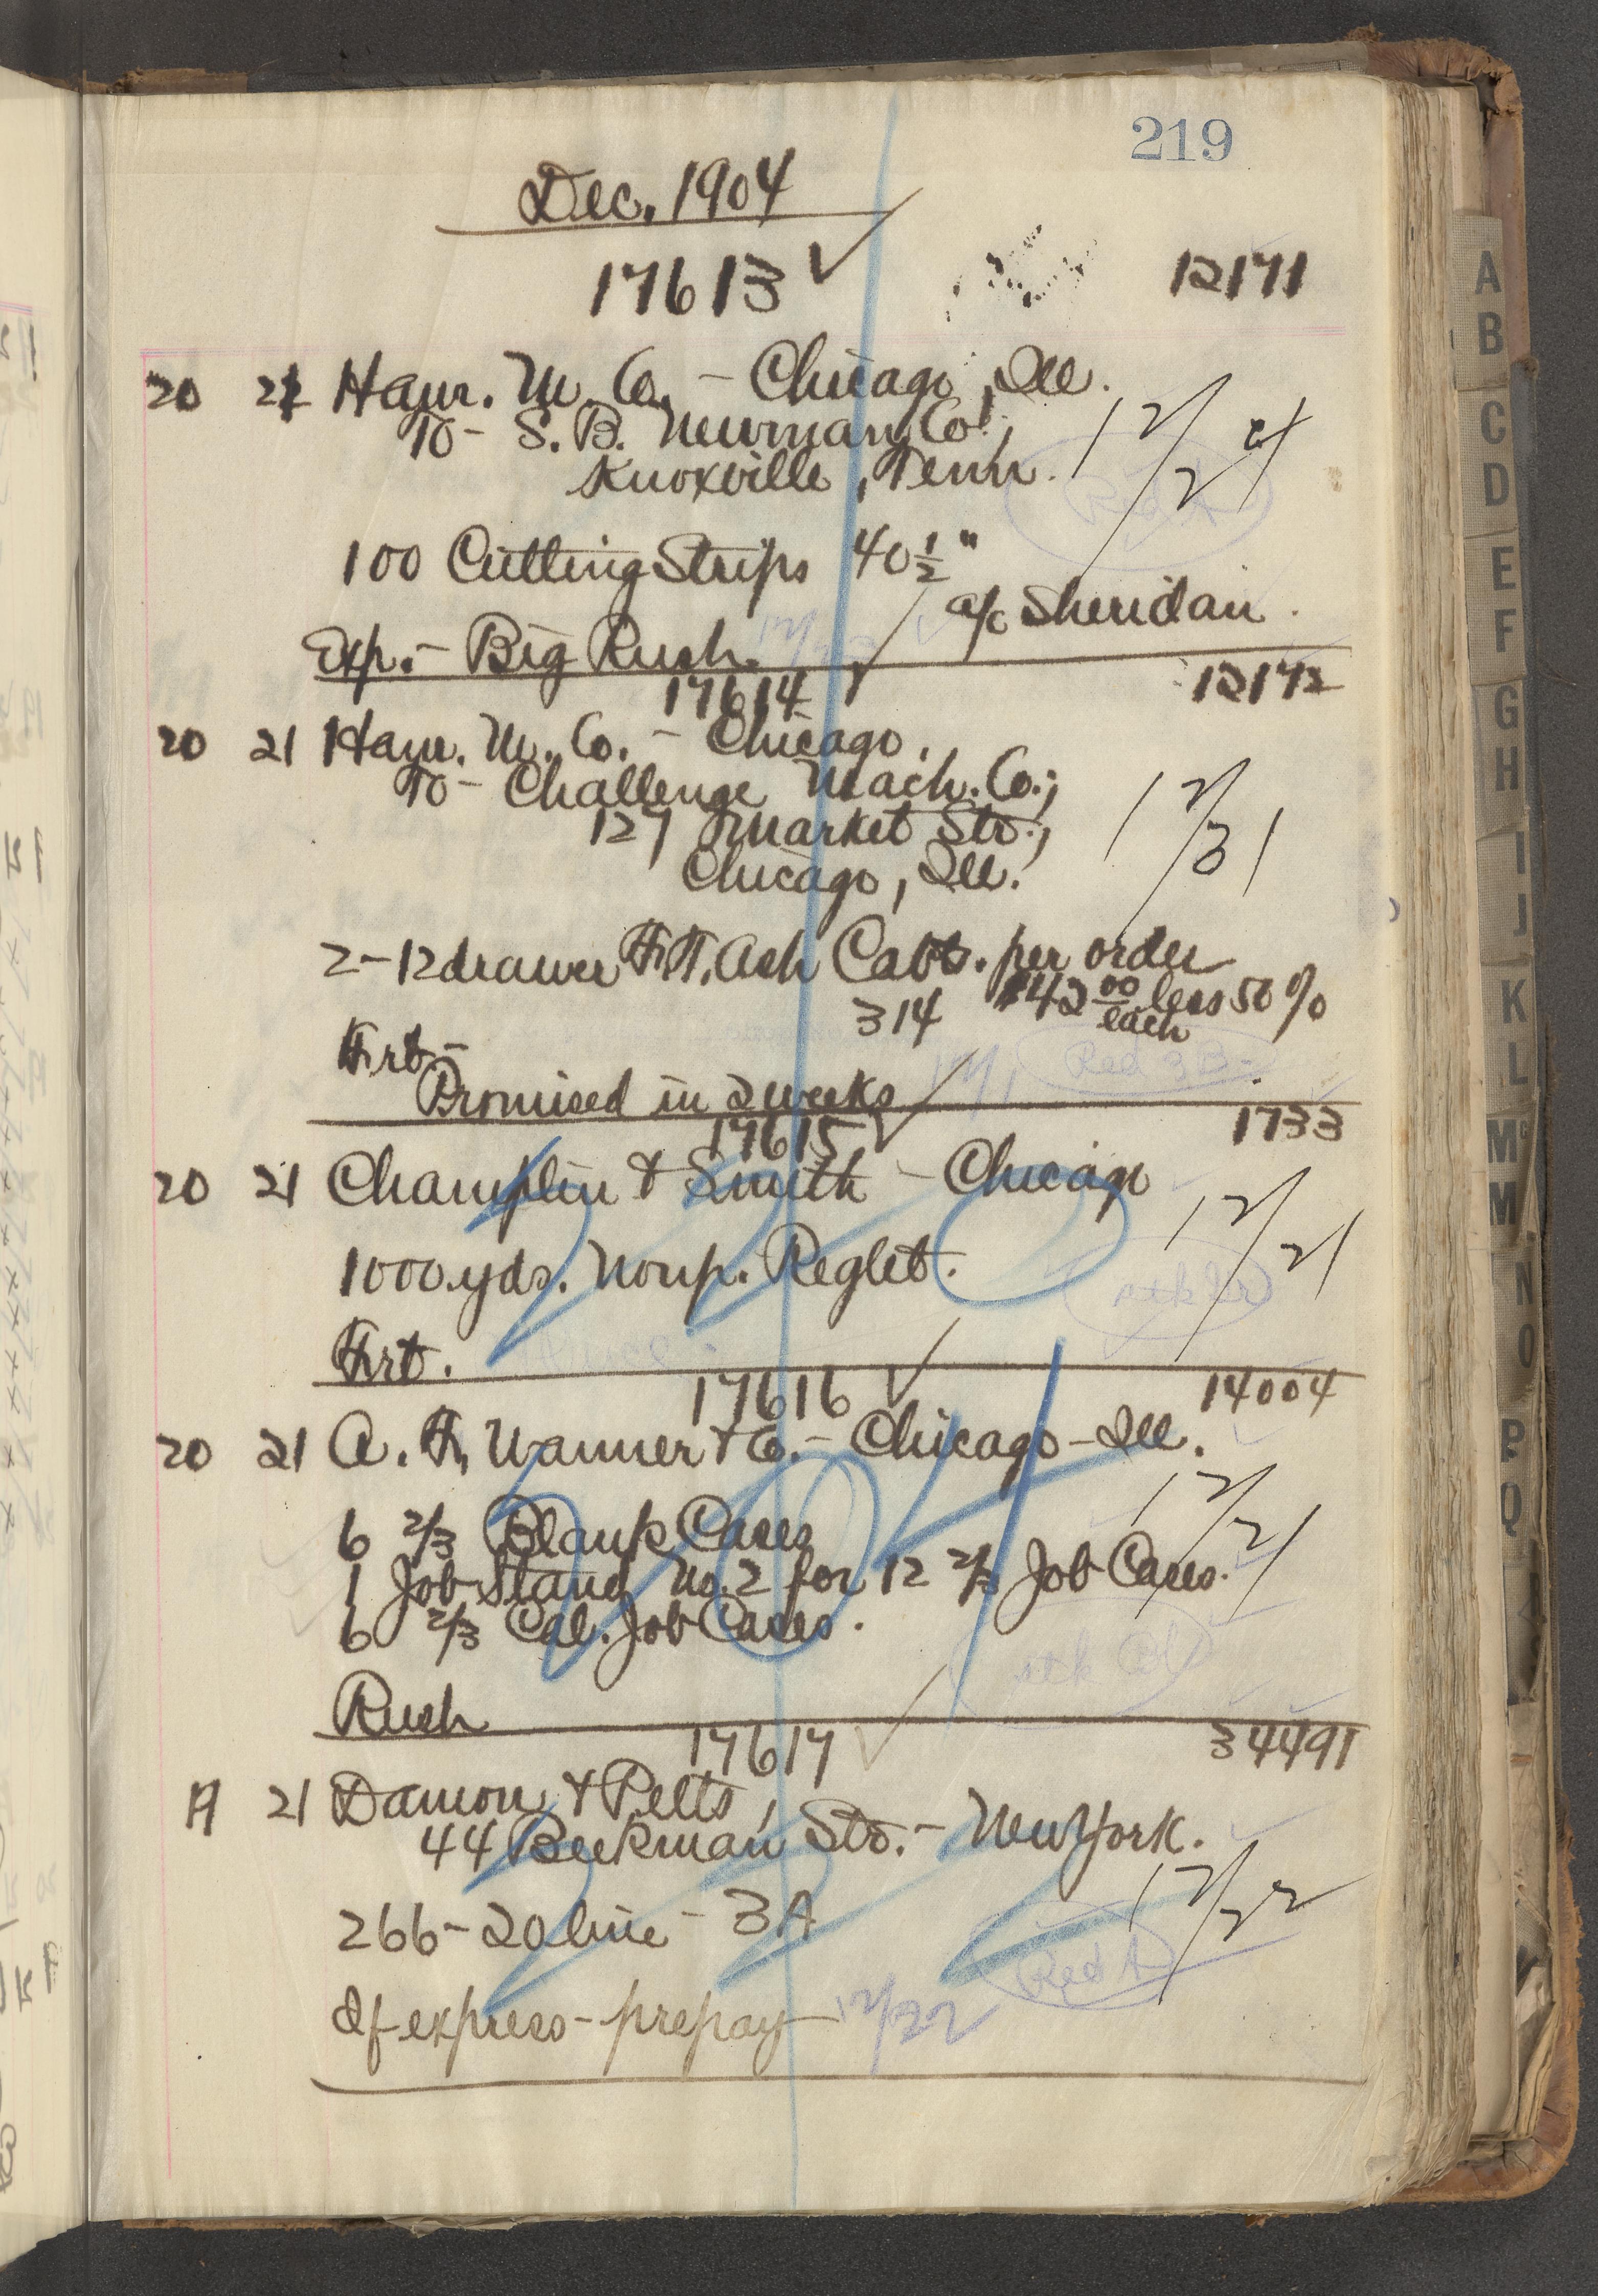 219
Dec. 1904
17613 ✓ 12171
20 21 Ham. M. Co. - Chicago, Ill.
To - S. B. Newman Co., 12/24
Knoxville, Tenn.
100 Cutting Strips 40 1/2"
a/c Sheridan.
Exp. - Big Rush.
17614 12172
20 21 Ham. M. Co. - Chicago.
To - Challenge Mach. Co.; 12/31
127 Market Str.,
Chicago, Ill.
2-12 drawer F. T. Ash Cabts. per order
314 $42 00 each less 50%
Frt -
Promised in 2 weeks
17615 ✓ 1733
20 21 Champlin & Smith - Chicago
12/21
1000 yds. Nonp. Reglet.
Frt.
17616 ✓ 14004
20 21 A. F. Wanner & Co. - Chicago - Ill.
12/21
6 2/3 Blank Cases
1 Job Stand No. 2 for 12 2/3 Job Cases.
6 2/3 Cal. Job Cases.
Rush
17617 ✓ 34491
19 21 Damon & Pelts,
44 Beekman Str. - New York.
12/22
266 - 20 line - 3A
Red A
If express - prepay 12/22
A
B
C
D
E
F
G
H
I
J
K
L
Mc
M
N
O
P
Q